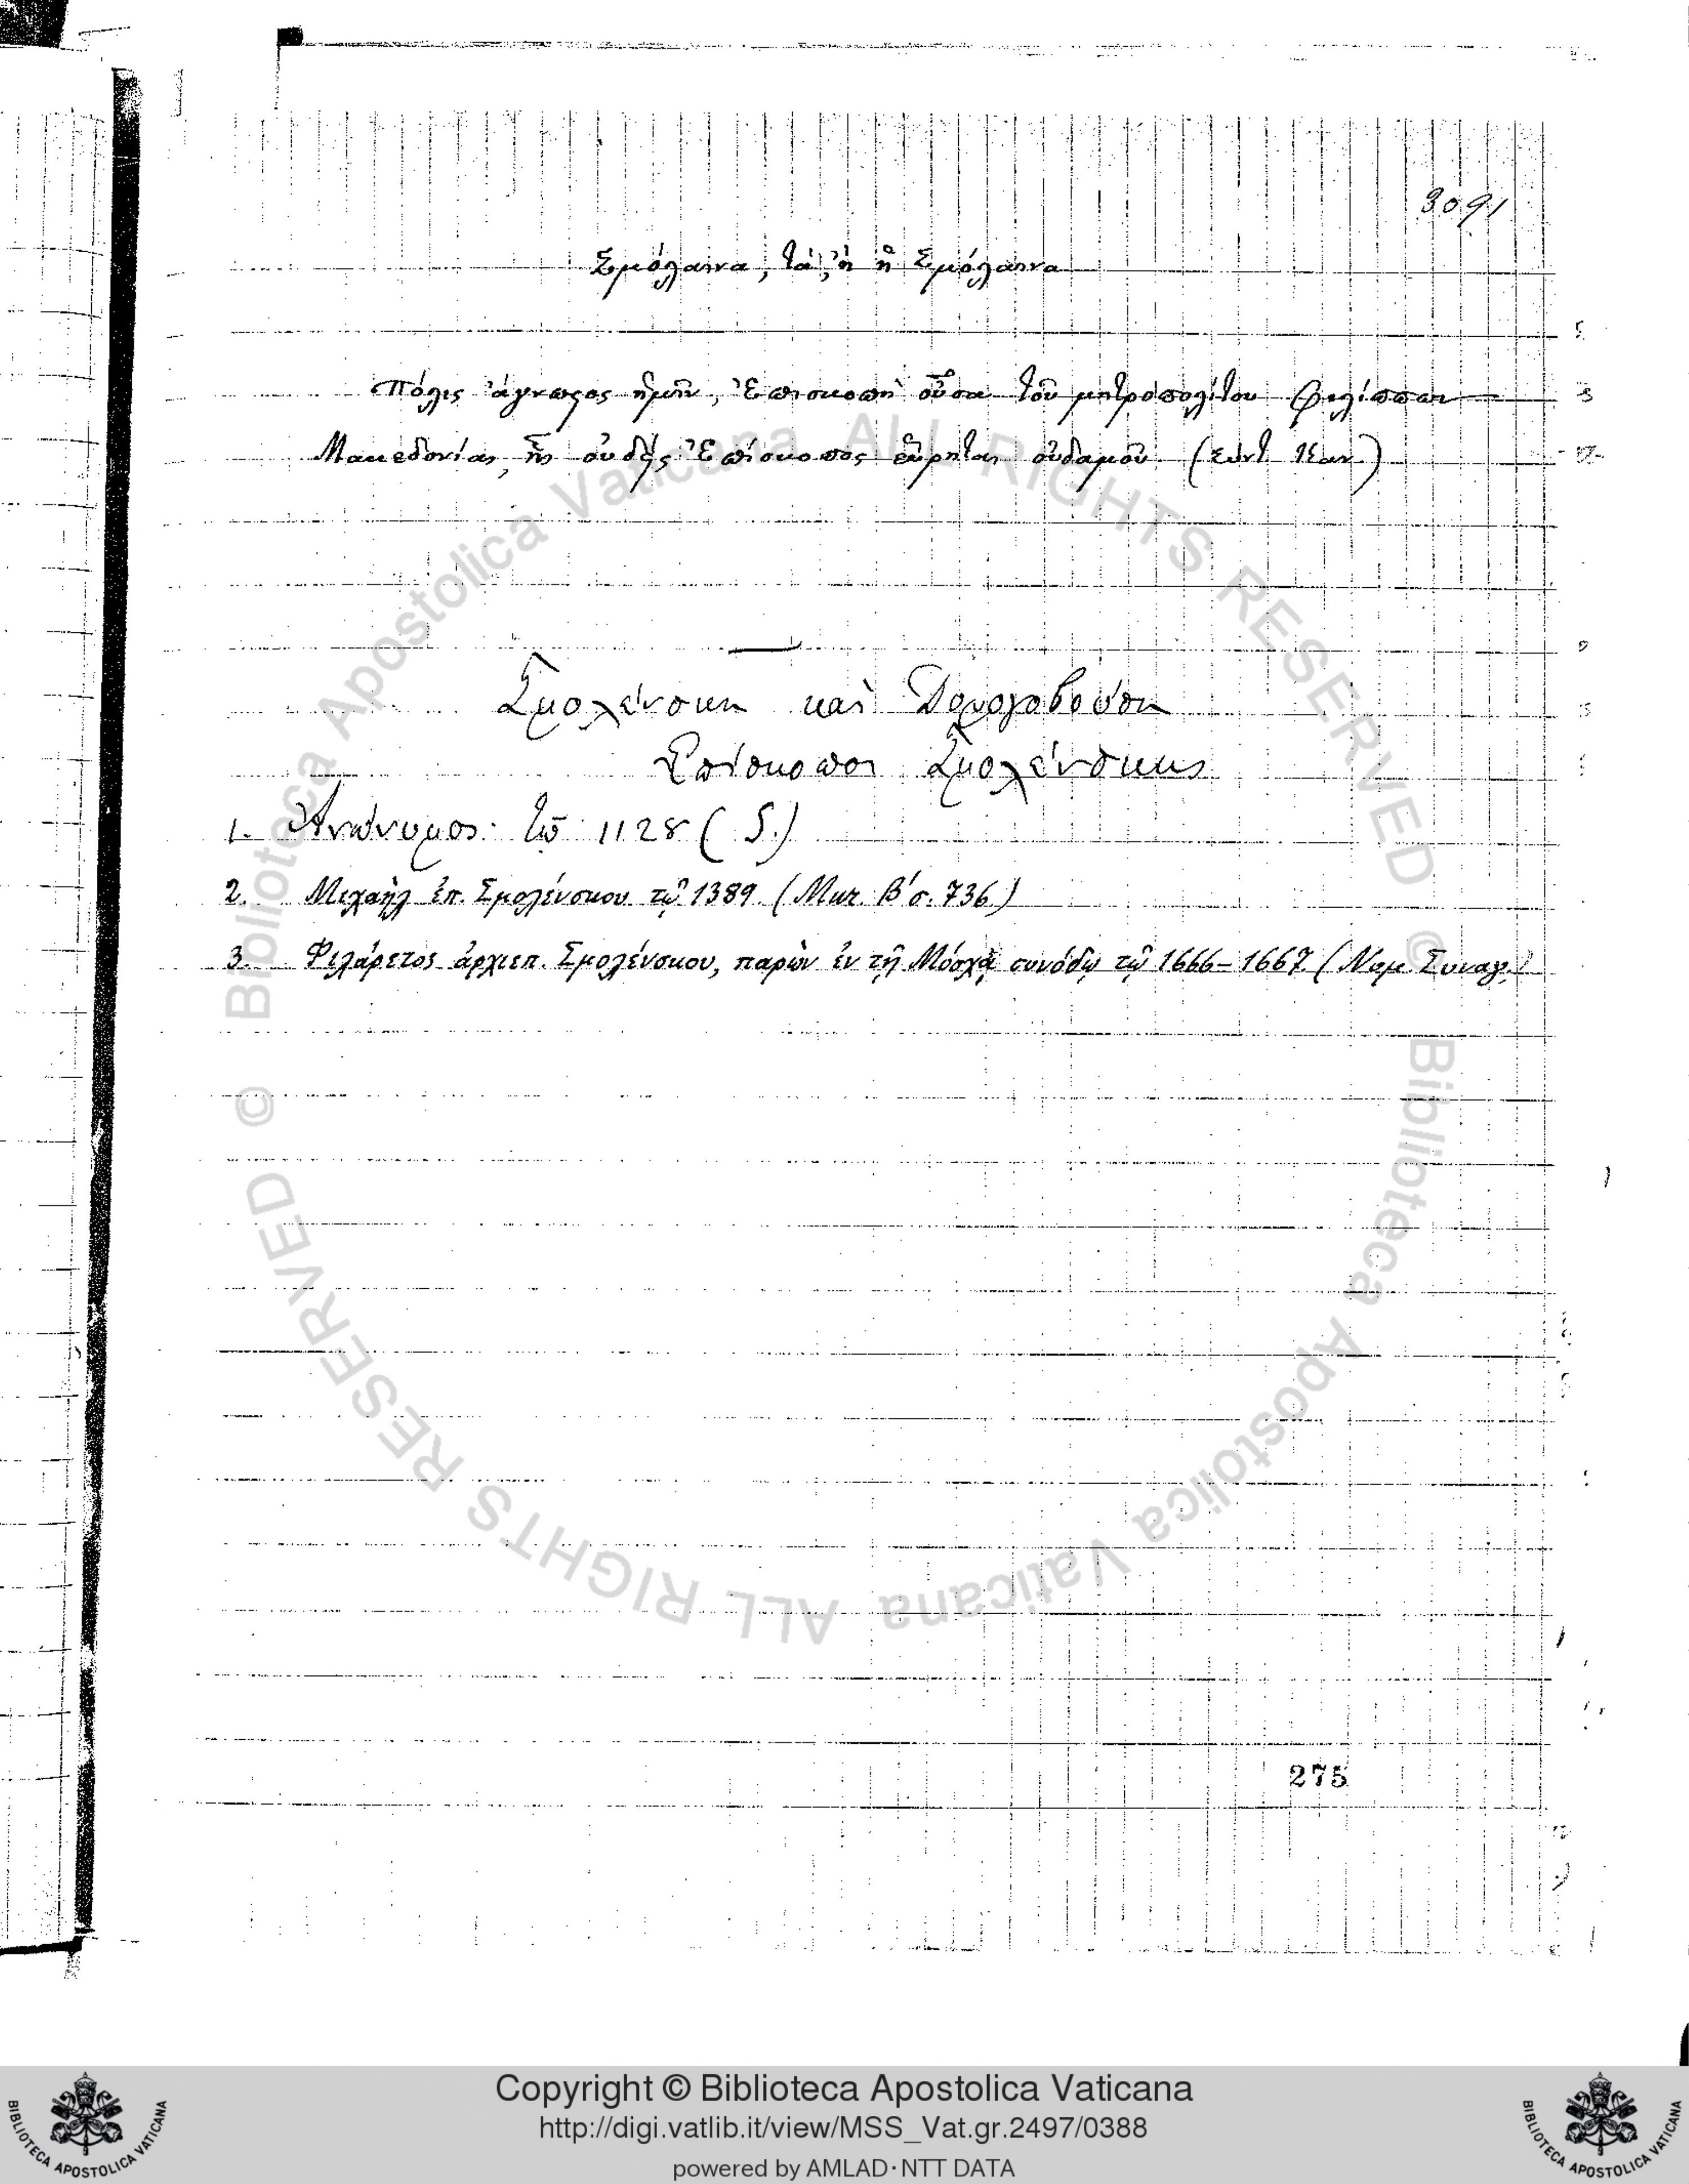 3091
Σμόλαινα, τά, ἢ ἡ Σμόλαινα
Πόλις ἄγνωστος ἡμῖν, Ἐπισκοπὴ οὖσα τοῦ μητροπολίτου Φιλίππων
Μακεδονίας, ἧς οὐδεὶς Ἐπίσκοπος εὕρηται οὐδαμοῦ
Σμολένσκη καὶ Δορογοβούση
Ἐπίσκοποι Σμολένσκης
1. Ἀνώνυμος. τῷ 1128 (S.)
2. Μιχαὴλ ἐπ. Σμολένσκου τῷ 1389. (Μικ. Β' σ. 736.)
3. Φιλάρετος ἀρχιεπ. Σμολένσκου, παρὼν ἐν τῇ Μόσχᾳ συνόδῳ τῷ 1666-1667. (Νομ. Συναγ.)
275
Biblioteca Apostolica Vaticana ALL RIGHTS RESERVED ©
Biblioteca Apostolica Vaticana ALL RIGHTS RESERVED ©
Copyright © Biblioteca Apostolica Vaticana
http://digi.vatlib.it/view/MSS_Vat.gr.2497/0388
powered by AMLAD·NTT DATA
BIBLIOTECA APOSTOLICA VATICANA
BIBLIOTECA APOSTOLICA VATICANA